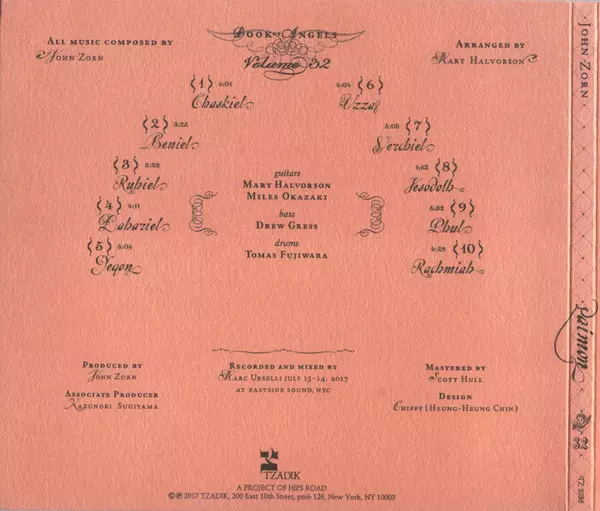 All music composed by
John Zorn
Book of Angels
Volume 32
Arranged by
Mary Halvorson
{1} 4:01
Chaskiel
{2} 3:25
Beniel
{3} 3:28
Ruhiel
{4} 4:11
Lahariel
{5} 5:04
Yeqon
5:04 {6}
Uzza
5:05 {7}
Verchiel
1:52 {8}
Jesodoth
5:52 {9}
Phul
4:28 {10}
Rachmiah
guitars
Mary Halvorson
Miles Okazaki
bass
Drew Gress
drums
Tomas Fujiwara
Produced by
John Zorn
Associate Producer
Kazunori Sugiyama
Recorded and mixed by
Marc Urselli July 13-14, 2017
at Eastside Sound, NYC
Mastered by
Scott Hull
Design
Chippy (Heung-Heung Chin)
TZADIK
A PROJECT OF HIPS ROAD
©℗ 2017 TZADIK, 200 East 10th Street, pmb 126, New York, NY 10003
John Zorn
Paimon
32
TZ 8356